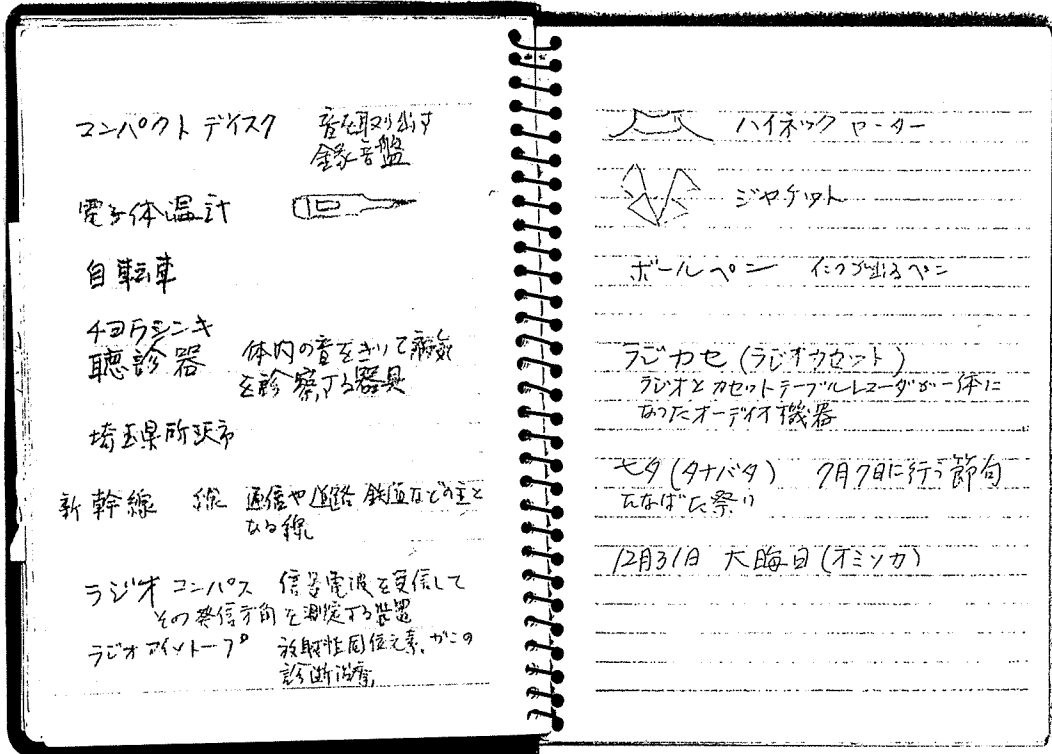 コンパクト ディスク 音を取り出す
録音盤
電子体温計
自転車
チョウシンキ
聴診器 体内の音をきいて病気
を診察する器具
埼玉県所沢市
新幹線 線 通信や道路 鉄道などの主と
なる線
ラジオ コンパス 信号電波を受信して
その発信方角を測定する装置
ラジオアイソトープ 放射性同位元素. がんの
診断治療
ハイネック セーター
ジャケット
ボールペン インクが出るペン
ラジカセ (ラジオカセット)
ラジオとカセットテープレコーダが一体に
なったオーディオ機器
七夕 (タナバタ) 7月7日に行う節句
たなばた祭り
12月31日 大晦日 (オミソカ)